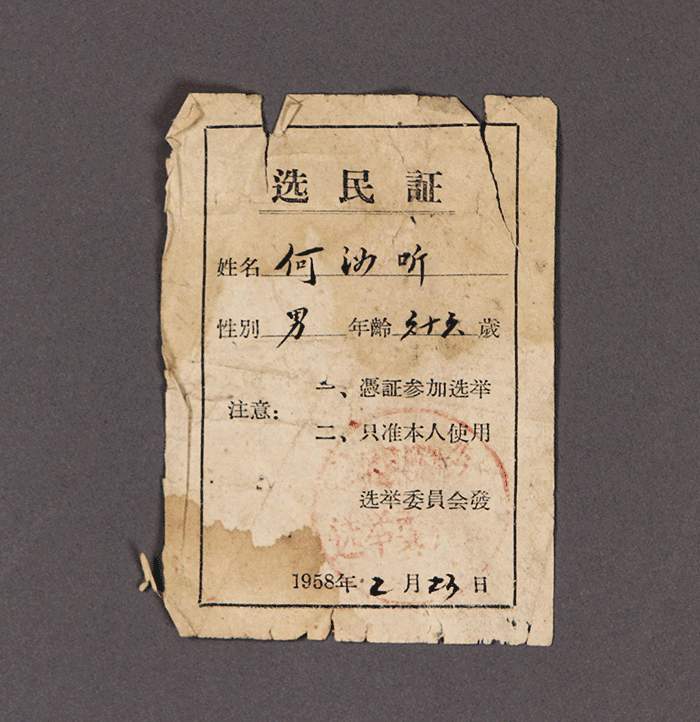 选民証
姓名 何汝听
性別 男 年齡 六十六 歲
注意：
一、憑証参加选举
二、只准本人使用
选举委員会發
选举委
1958年 2 月 日